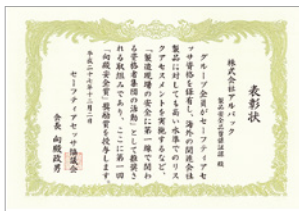 表彰状
株式会社アルバック
製品安全品質保証課 殿
グループ全員がセーフティアセ
ッサ資格を保有し、海外の関連会社
製品に対しても高い水準でのリス
クアセスメントを実施するなど、
「製造現場の安全に第一線で関わ
る資格者集団の活動」として推奨さ
れる取組みであり、ここに第一回
「向殿安全賞」奨励賞を授与します。
平成二十七年十二月二日
セーフティアセッサ協議会
会長 向殿政男